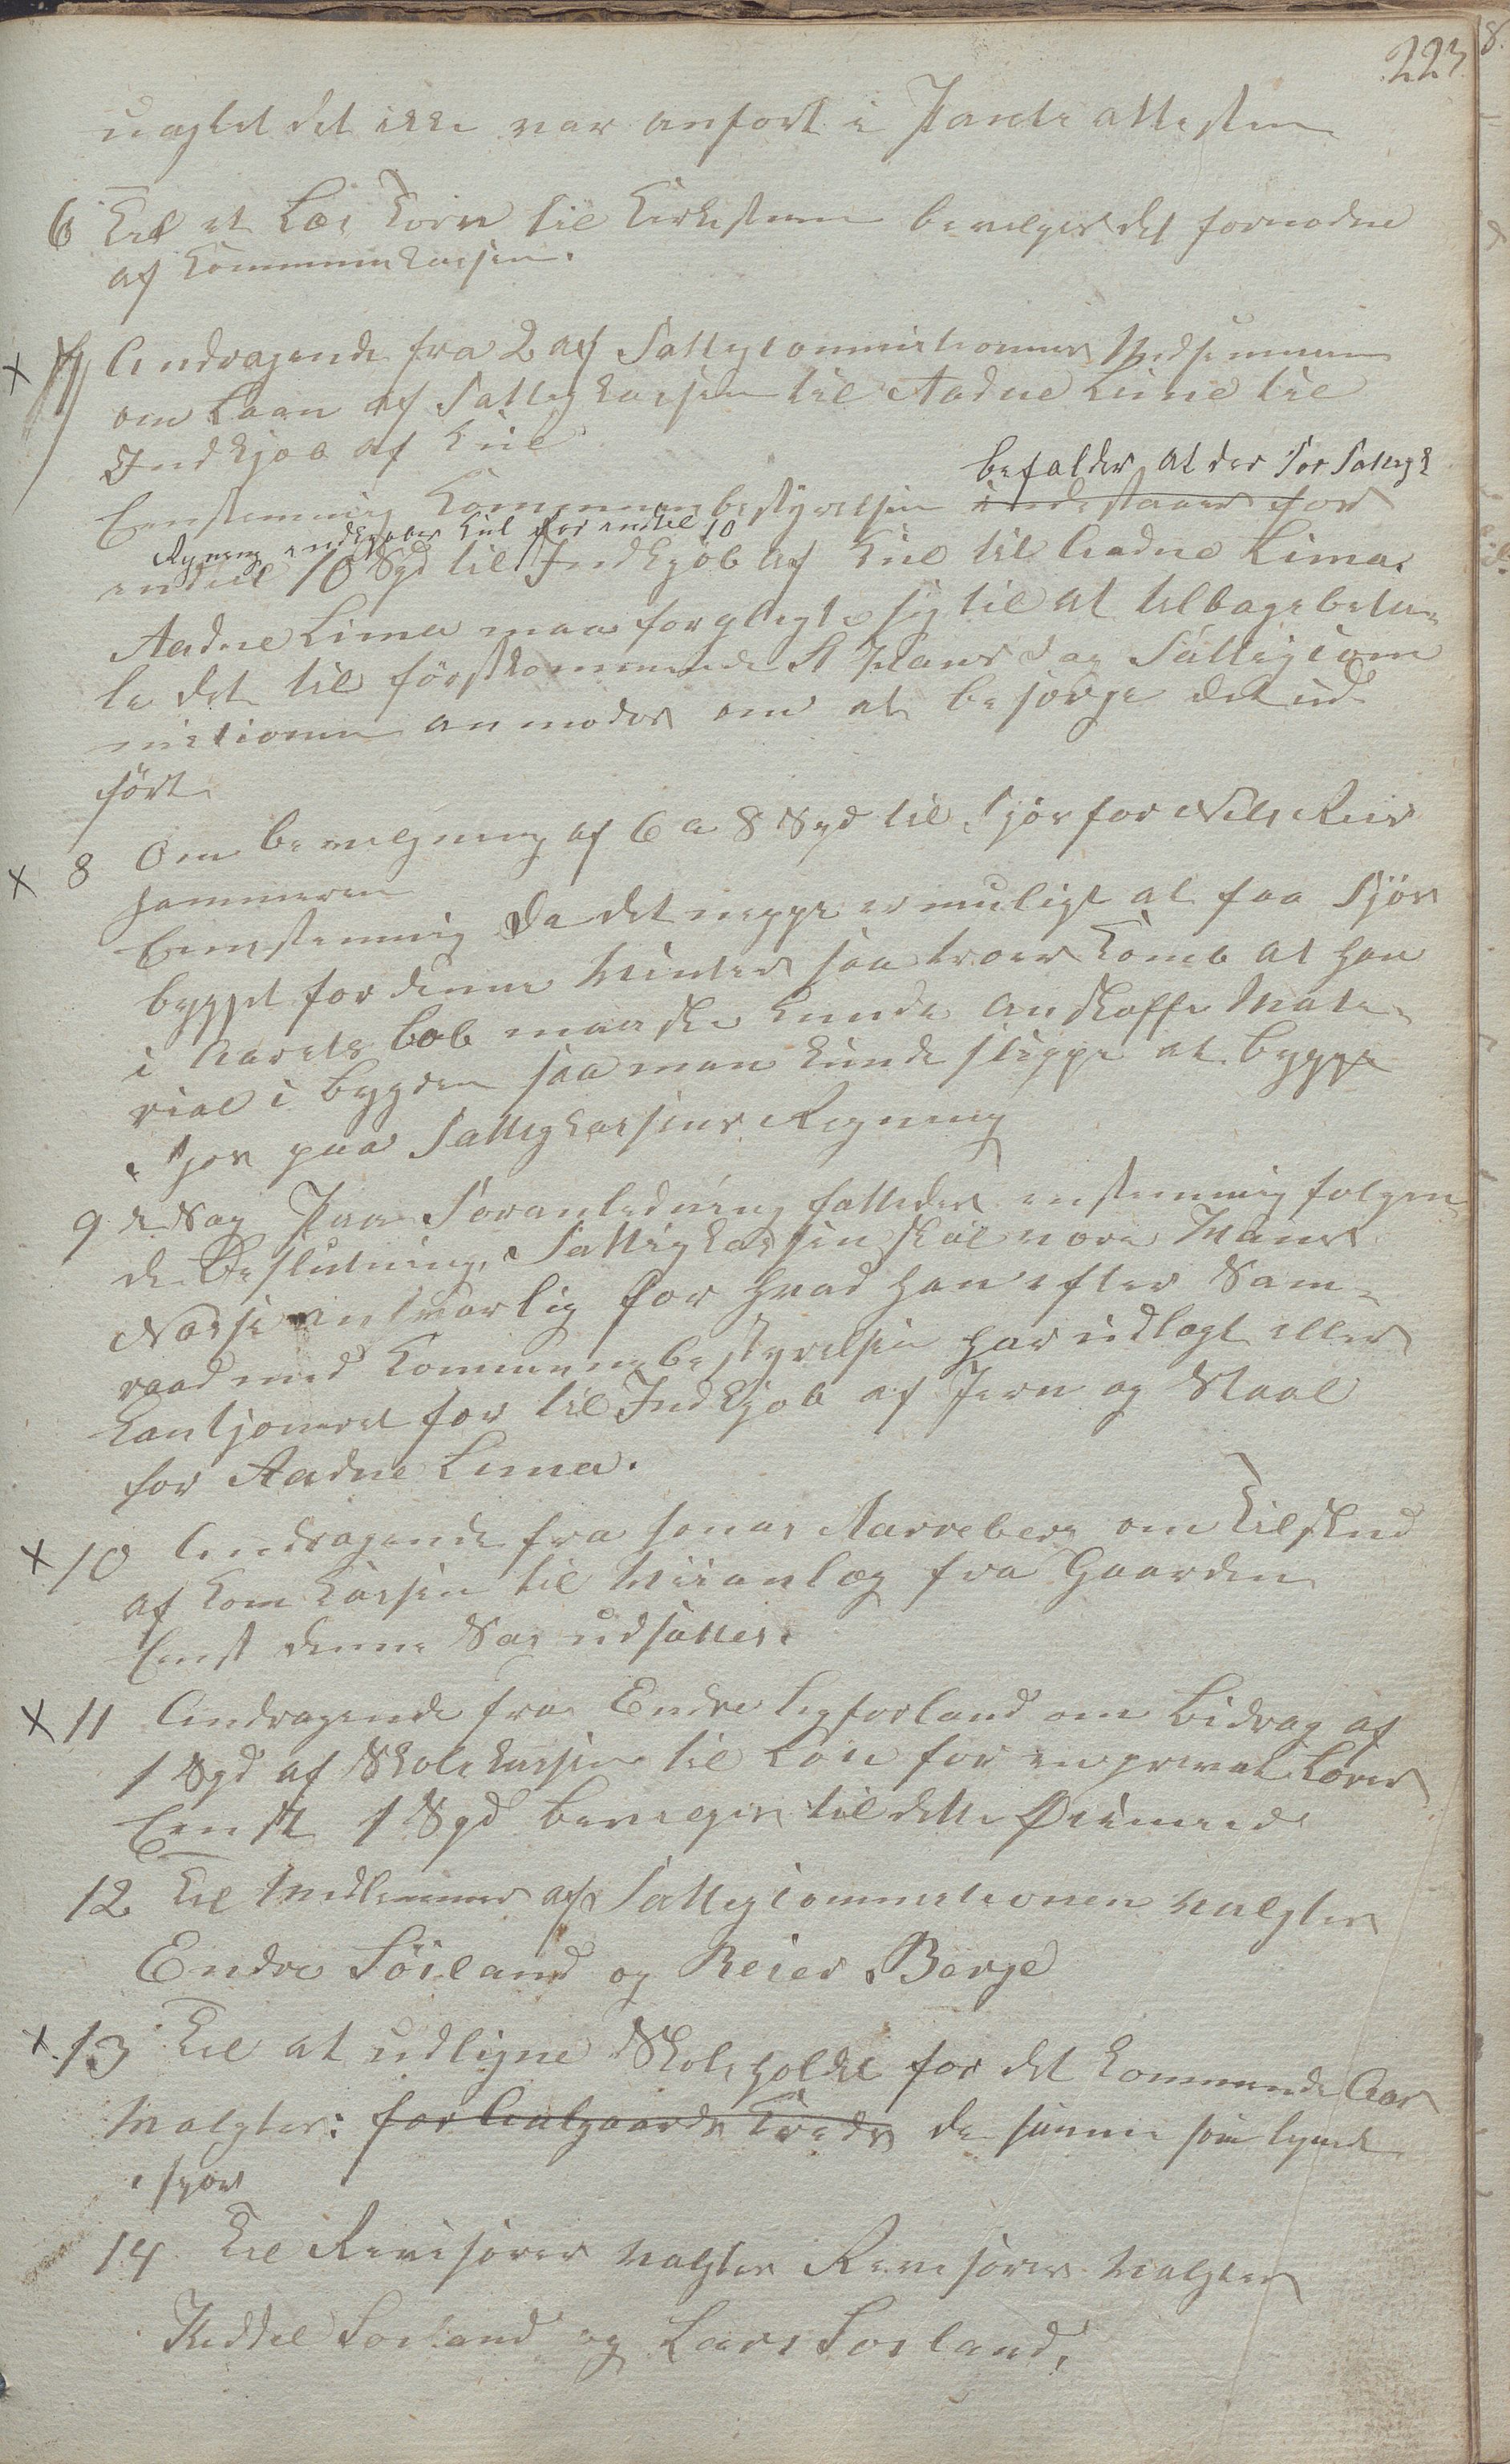 223
uagtet det ikke var anfort i Panteattesten
6 Til et Læs Korn til Kirkestuen bevilges det fornodne
af Kommunekassen.
x 7 Andragende fra 2 af Fattigcommissionens Medlemmer
om Laan af Fattigkassen til Aadne Lima til
Indkjob af Kul
befalder at der for Fattigk
Eenstemmig Kommunebestyrelsen indestaaer for
Regning indkjober Kul for indtil 10
indtil 10 Spd til Indkjøb af Kul til Aadne Lima.
Aadne Lima maa forpligte sig til at tilbagebeta-
le det til førstkommende St Hans Dag Fattigcom
missionen anmodes om at besørge det ud
ført
x 8 Om bevilgning af 6 a 8 Spd til Fjøs for Nils Reis
hammeren
Eenstemmig Da det neppe er muligt at faa Fjøs
bygget for denne Vinter saa troer Komb at han
i Aarets Løb maaske kunde anskaffe Mate-
rial i bygden saa man kunde slippe at bygge
Fjos paa Fattigkassens Regning
9de Sag Paa Foranledning fattedes enstemmig folgen
de Beslutning, Fattigkassen skal vore Hans
Nosse ansvarlig for hvad han efter Sam-
raad med Kommunebestyrelsen har udlagt eller
kautjoneret for til Indkjob af Jern og Staal
for Aadne Lima.
x 10 Andragende fra Jonas Aarreberg om Tilskud
af Komkassen til Veianlæg fra Gaarden
Eenst denne Sag udsættes.
x 11 Andragende fra Endre Fosland om Bidrag af
1 Spd af Skolekassen til Løn for en privat Lærer
Eenst 1 Spd bevilges til dette Øiemed
12 Til Medlemmer af Fattigcommissionen valgtes
Endre Söiland og Reier Berge
x 13 Til at udligne Skoleholdet for det kommende Aar
valgtes: for Aalgaards Kreds de samme som lignede
ifjor
14 Til Revisorer valgtes Revisorer valgtes
Kittel Soiland og Lars Soiland,